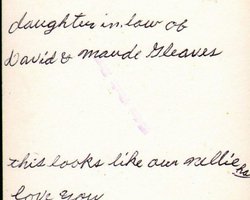 daughter in. law of
David & Maude Gleaves
this looks like our Nellie
love you